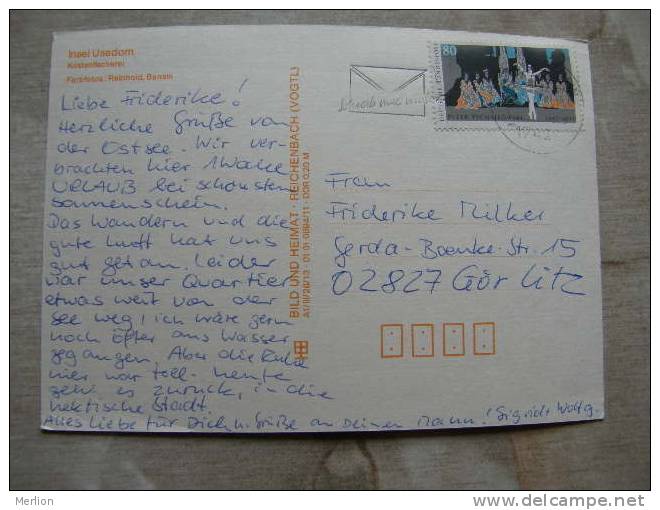 Insel Usedom
Küstenfischerei
Farbfotos: Reinhold, Bansin
Liebe Friderike!
Herzliche Grüße von
der Ostsee. Wir ver-
brachten hier 1 Woche
URLAUB bei schönstem
Sonnenschein.
Das Wandern und die
gute Luft hat uns
gut getan. Leider
war unser Quartier
etwas weit von der
See weg! ich wäre gern
noch öfter ans Wasser
gegangen. Aber die Ruhe
hier war toll. heute
geht es zurück, in die
hektische Stadt.
Alles Liebe für Dich u. Grüße an Deinen Mann! Sigrid
BILD UND HEIMAT · REICHENBACH (VOGTL)
A1/III/26/13 · 01 01 0894/11 · DDR 0,20 M
80
Schreib mal
Frau
Friderike Milker
Gerda-Boenke-Str. 15
02827 Görlitz
Merlion
www.delcampe.net